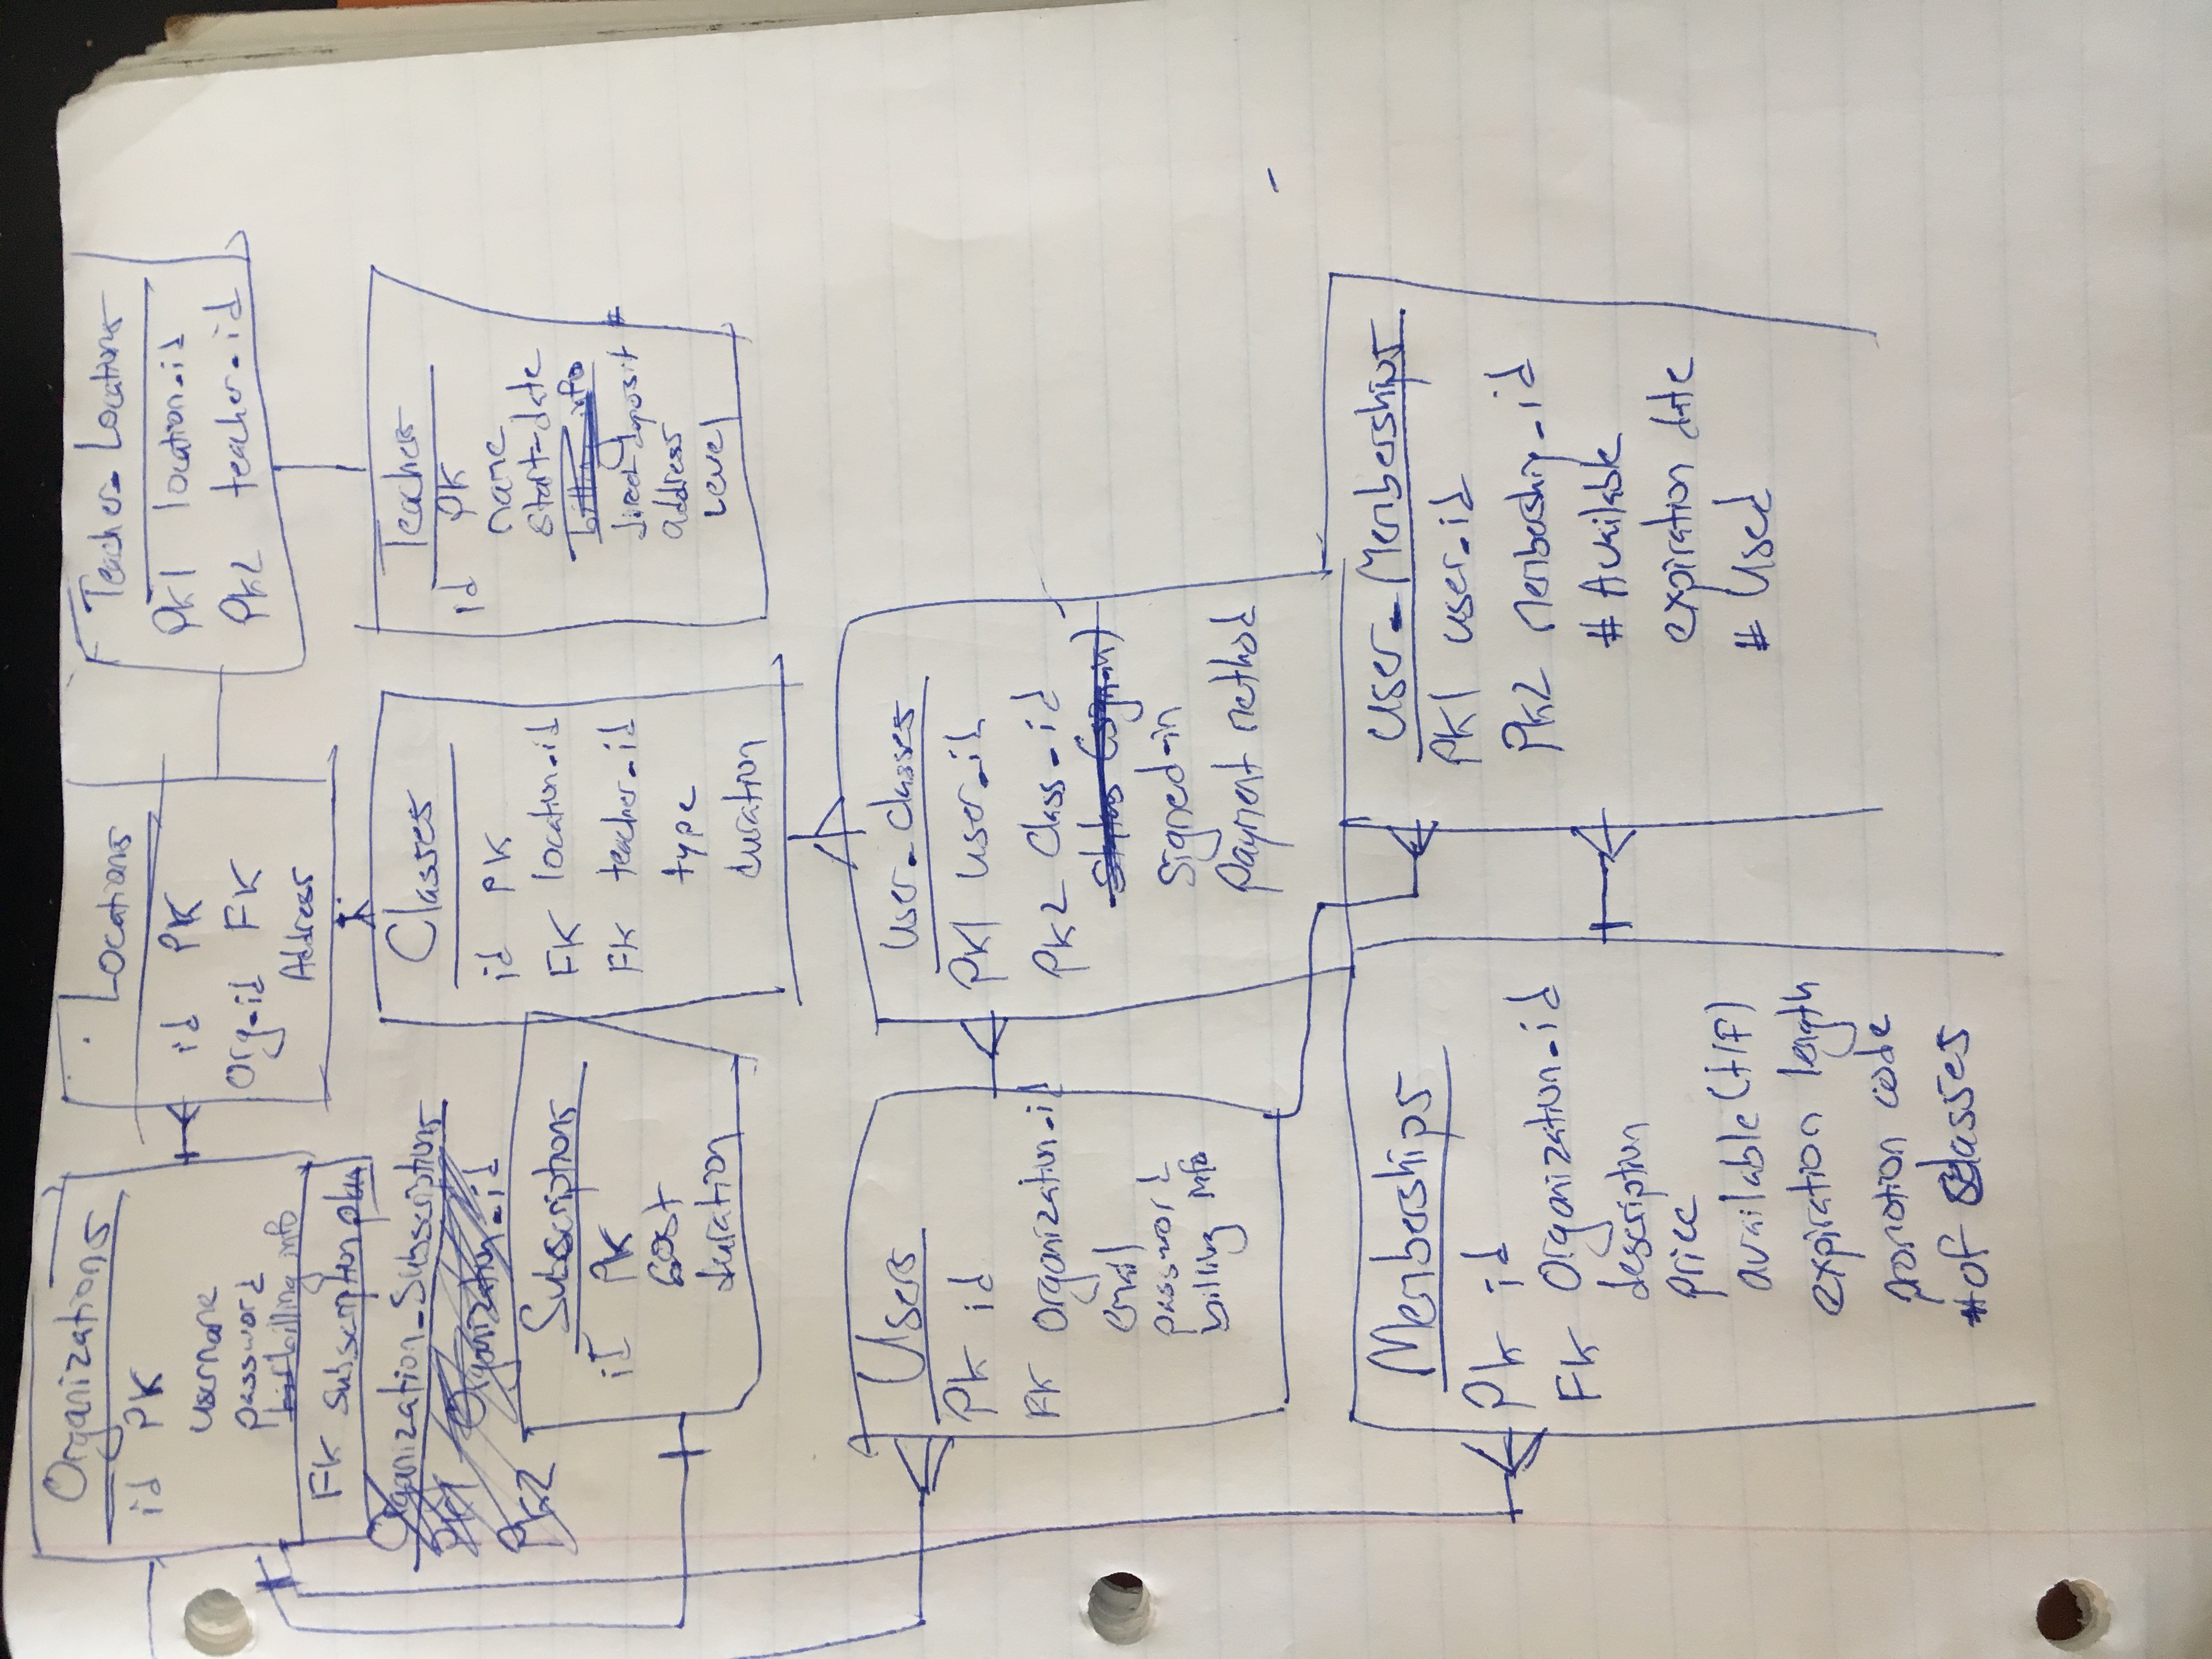 Organizations
id PK
username
password
billing info
FK Subscription plan
Organization_Subscriptions
PK1 Organization_id
PK2
Locations
id PK
Org_id FK
Address
Teacher_Locations
PK1 location_id
PK2 teacher_id
Subscriptions
id PK
cost
duration
Classes
id PK
FK location_id
FK teacher_id
type
duration
Teachers
id PK
name
start-date
billing info
direct deposit #
address
Level
Users
PK id
FK organization_id
email
password
billing info
User_Classes
PK1 user_id
PK2 Class_id
status (sign-in)
signed-in
payment method
Memberships
PK id
FK Organization_id
description
price
available (t/f)
expiration length
promotion code
# of classes
User_Memberships
PK1 user_id
PK2 membership_id
# Available
expiration date
# Used